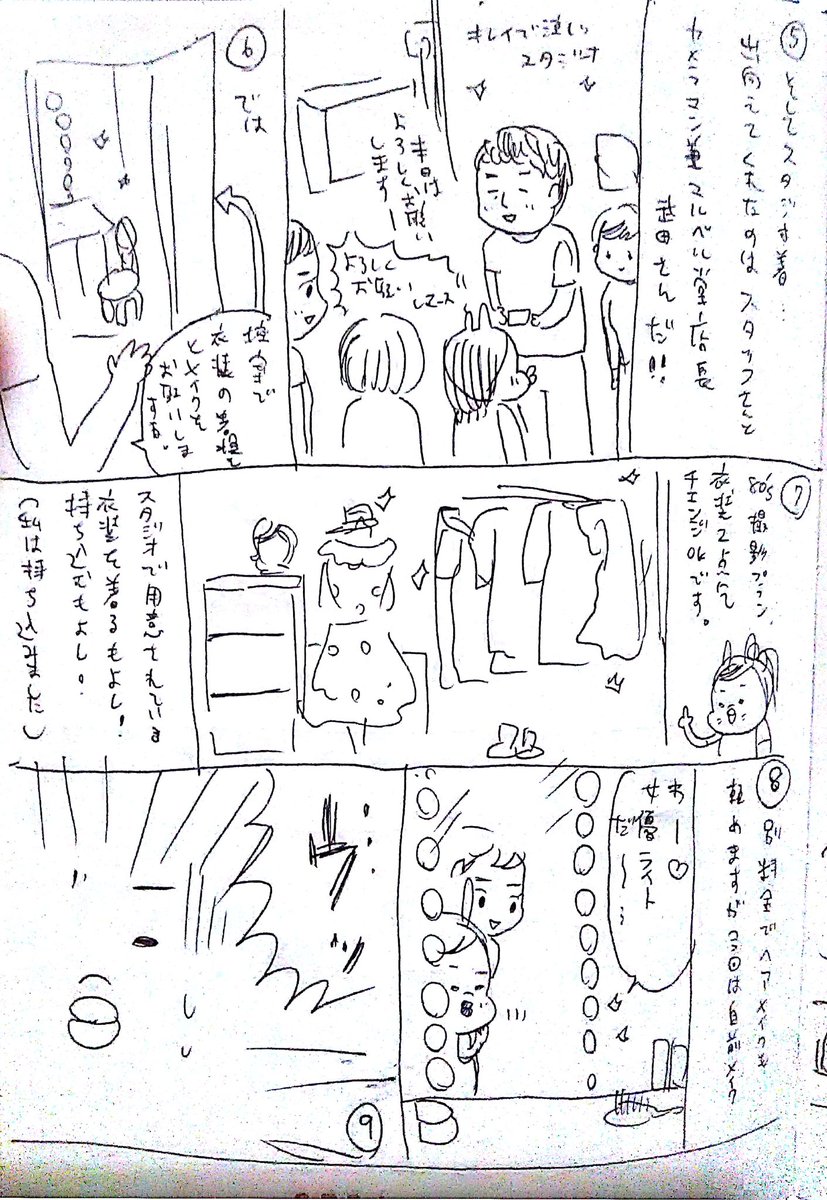 ⑤ そしてスタジオ着…
出向えてくれたのは スタッフさんと
カメラマン兼マルベル堂店長
武田さんだ!!
キレイで涼しい
スタジオ
本日は
よろしくお願い
します
よろしく
お願い
しまース
⑥
では
控室で
衣装の準備
とメイクを
お願いしま
する。
⑦
80's 撮影プラン、
衣装2点まで
チェンジOKです。
スタジオで用意されている
衣装を着るもよし!
持ち込むもよし!
(私は持ち込みました)
⑧ 別料金でヘアメイクも
頼めますが今回は自前メイク
わー♡
女優ライト
だ〜
⑨